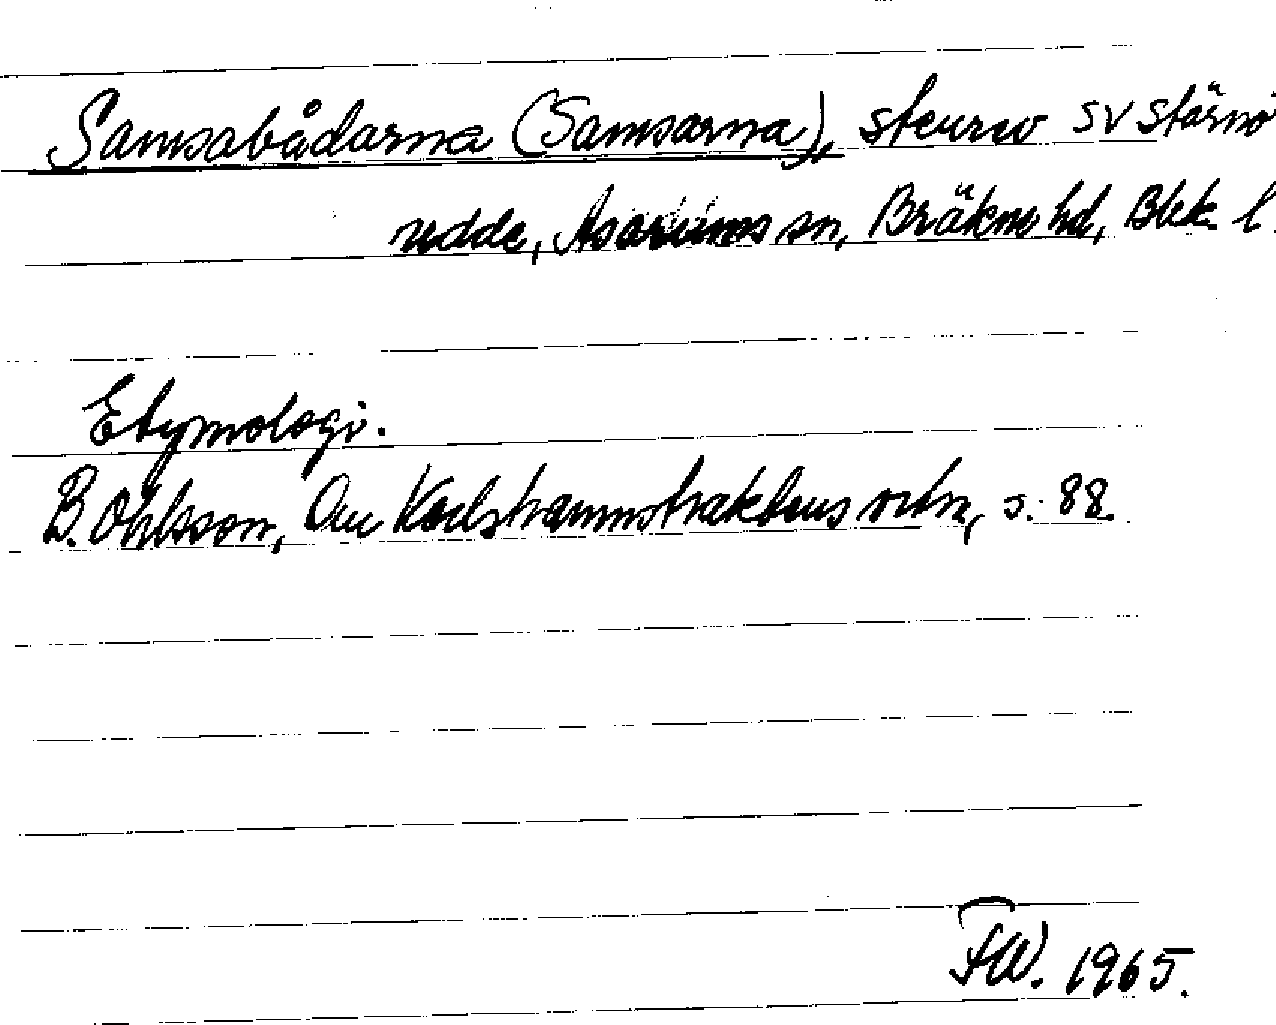 Samsabådarna (Samsarna), stenrev SV Stärnö
udde, Asarums sn, Bräkne hd, Blek. l.
Etymologi.
B. Ohlsson, Om Karlshamnstraktens ortn, s. 88.
FW. 1965.